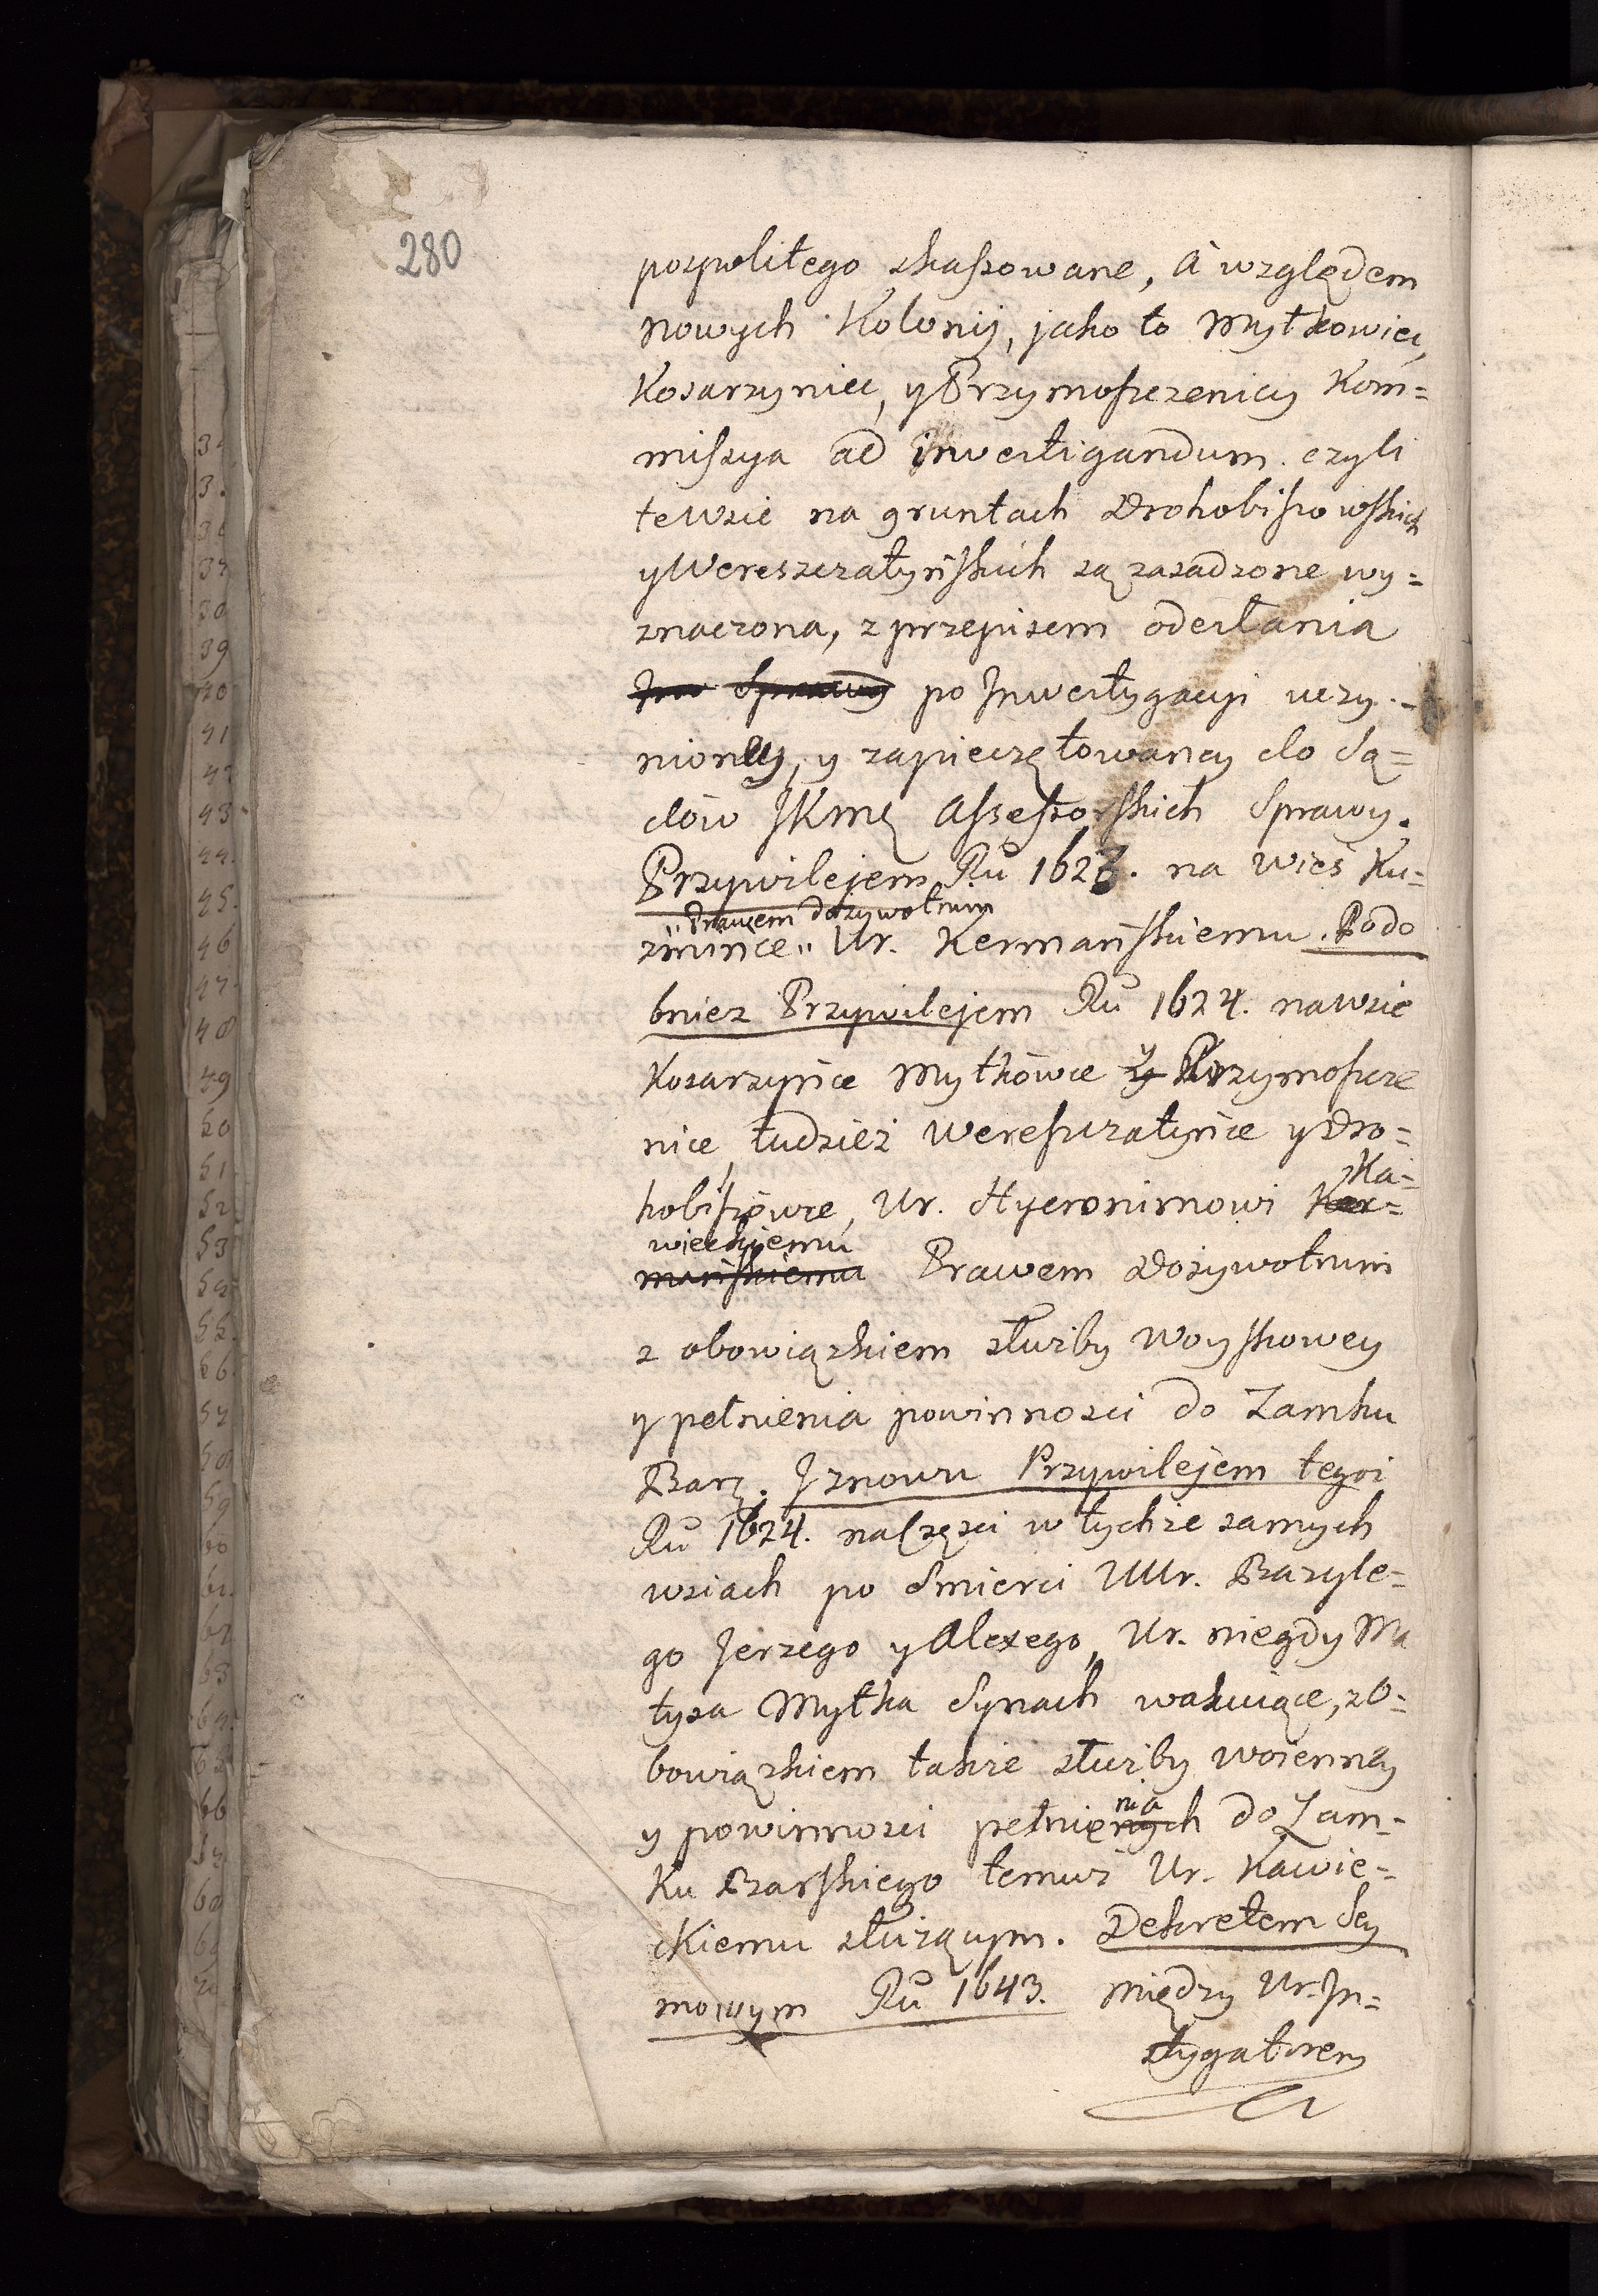 280
pozpolitego skaſsowane, à względem
nowych Kolonij, jako to Mytkowiec,
Kosarzyniec, y Przymoſzczenicy Kom=
miſsya ad inwestigandum. czyli
te Wsie na gruntach Drohobiſzowſkich
y Wereszczatyńſkich są zasadzone wy=
znaczona, z przepisem odesłania
Jnw Sprawy po Jnwestygacyi uczy=
nioney, y zapieczętowaney do Są=
dów JKMę Aſseſsorſkich Sprawy.
Przywilejem Ru 1623. na Wieś Ku=
"Prawem dożywotnim
zmince" Ur. Kermańſkiemu. Podo
bniez Przywilejem Ru 1624. na Wsie
Kosarzyńce Mytkówce y Przymoſzcze
nice, tudzież Wereſzczatyńce y Dro=
hobiſzówce, Ur. Hyeronimowi Ker=
Ka=
wieckiemu
mańſkiemu Prawem Dożywotnim
z obowiązkiem służby Woyſkowey
y pełnienia powinnosci do Zamku
Barz. J znowu Przywilejem tegoż
Ru 1624. na Części w tychże samych
wsiach po Smierci UUr. Bazyle=
go Jerzego y Alexego, Ur. niegdy Ma
tysa Mytka Synach wakuiące, z o=
bowiązkiem takze służby woienney
nia
y powinnosci pełnienych do Zam=
Ku Barſkiego temuż Ur. Kawie=
ckiemu służącym. Dekretem Sey
mowym Ru 1643. między Ur. Jn=
stygatorem